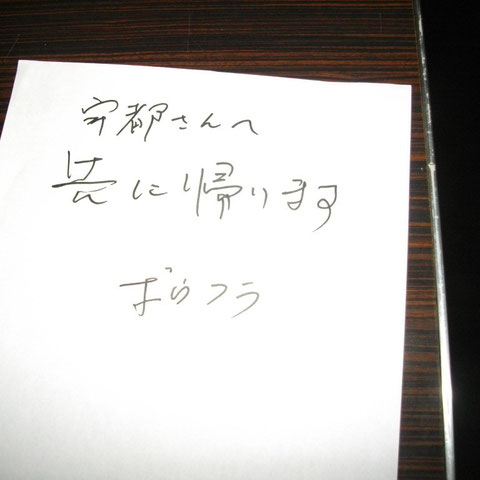 宇都さんへ
に帰ります
ボウフラ